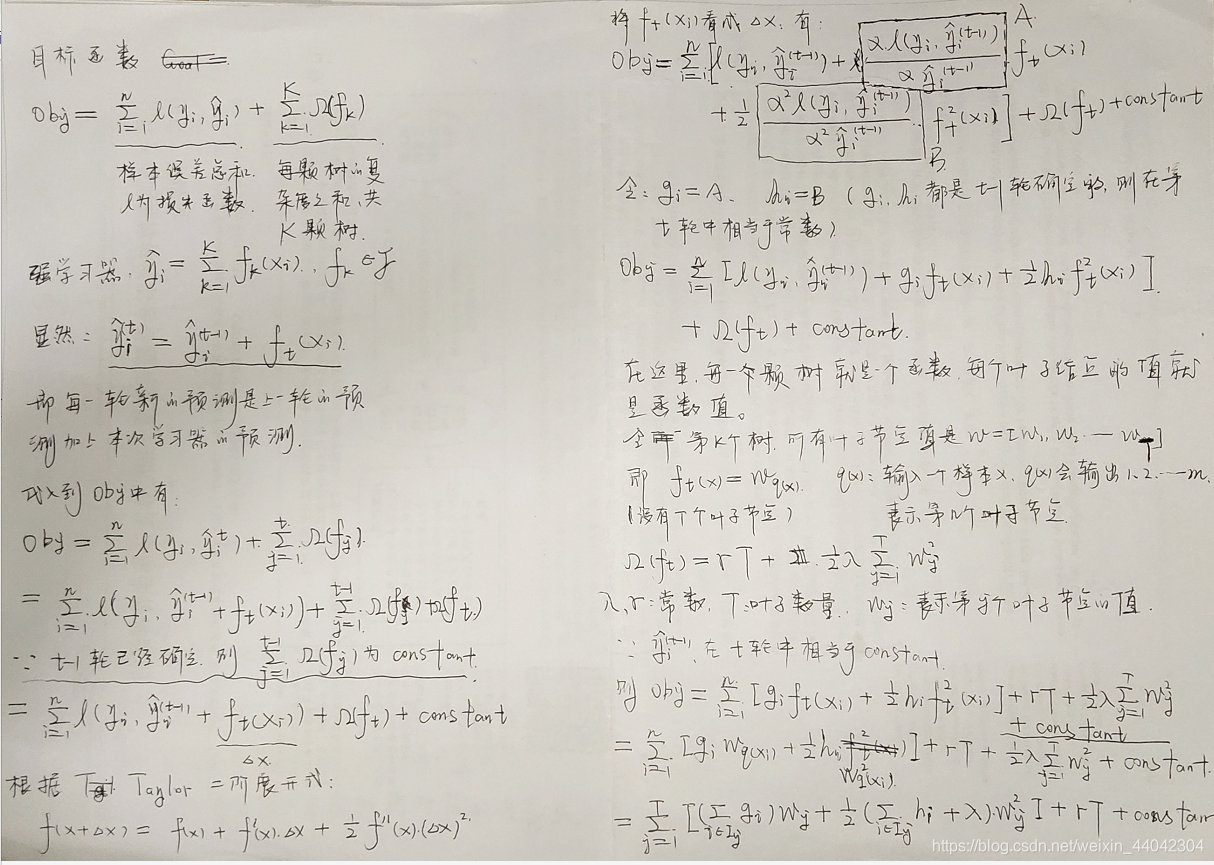 目标函数
Obj = Σ_{i=1}^{n} l(y_i, ŷ_i) + Σ_{k=1}^{K} Ω(f_k)
样本误差总和. 每颗树的复
l为损失函数. 杂度之和, 共
K颗树.
强学习器. ŷ_i = Σ_{k=1}^{K} f_k(x_i)., f_k ∈ F
显然: ŷ_i^{(t)} = ŷ_i^{(t-1)} + f_t(x_i).
即每一轮新的预测是上一轮的预
测加上本次学习器的预测.
代入到Obj中有:
Obj = Σ_{i=1}^{n} l(y_i, ŷ_i^t) + Σ_{j=1}^{t} Ω(f_j).
= Σ_{i=1}^{n} l(y_i, ŷ_i^{(t-1)} + f_t(x_i)) + Σ_{j=1}^{t-1} Ω(f_j) + Ω(f_t)
∵ t-1轮已经确定. 则 Σ_{j=1}^{t-1} Ω(f_j) 为 constant.
= Σ_{i=1}^{n} l(y_i, ŷ_i^{(t-1)} + f_t(x_i)) + Ω(f_t) + constant
Δx.
根据 Taylor 二阶展开式:
f(x+Δx) = f(x) + f'(x)·Δx + ½ f''(x)·(Δx)².
将 f_t(x_i) 看成 Δx, 有: A.
Obj = Σ_{i=1}^{n} [l(y_i, ŷ_i^{(t-1)}) + α·l(y_i, ŷ_i^{(t-1)}) / α ŷ_i^{(t-1)} f_t(x_i)
+ ½ α² l(y_i, ŷ_i^{(t-1)}) / α² ŷ_i^{(t-1)} f_t²(x_i)] + Ω(f_t) + constant
B.
令: g_i = A. h_i = B (g_i, h_i 都是 t-1 轮确定的, 则在第
t轮中相当于常数)
Obj = Σ_{i=1}^{n} [l(y_i, ŷ_i^{(t-1)}) + g_i f_t(x_i) + ½ h_i f_t²(x_i)].
+ Ω(f_t) + constant.
在这里, 每一个颗树就是一个函数, 每个叶子结点的值就
是函数值。
令 第K个树, 所有叶子节点值是 w = [w_1, w_2 … w_T]
即 f_t(x) = w_{q(x)}. q(x): 输入一个样本x, q(x)会输出1,2……m.
(设有T个叶子节点) 表示第几个叶子节点.
Ω(f_t) = rT + ½λ Σ_{j=1}^{T} w_j²
λ, r: 常数, T: 叶子数量. w_j: 表示第j个叶子节点的值.
∵ ŷ_i^{(t-1)}, 在t轮中相当于constant.
则 Obj = Σ_{i=1}^{n} [g_i f_t(x_i) + ½ h_i f_t²(x_i)] + rT + ½λ Σ_{j=1}^{T} w_j²
+ constant
= Σ_{i=1}^{n} [g_i w_{q(x_i)} + ½ h_i w²_{q(x_i)}] + rT + ½λ Σ_{j=1}^{T} w_j² + constant.
= Σ_{j=1}^{T} [(Σ_{i∈I_j} g_i) w_j + ½ (Σ_{i∈I_j} h_i + λ) w_j²] + rT + constan
https://blog.csdn.net/weixin_44042304